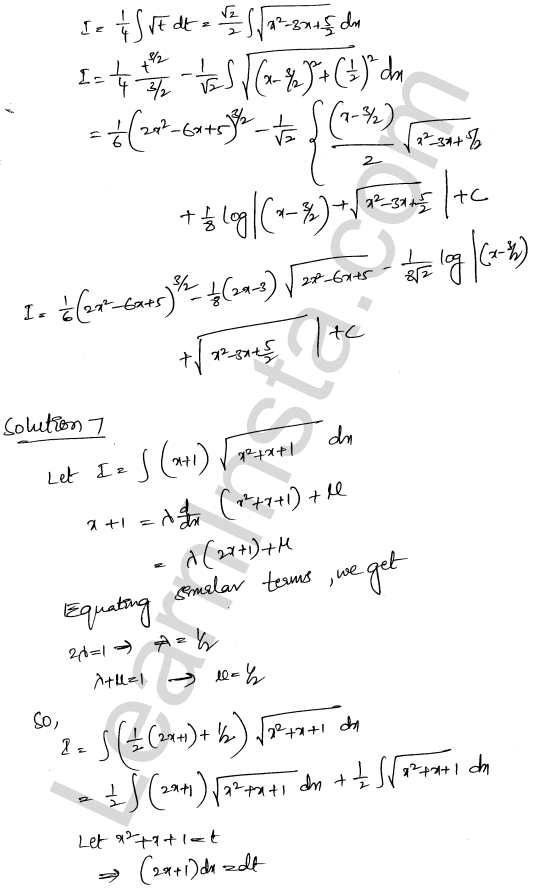 I = 1/4 ∫ √t dt = √2/2 ∫ √(x²-3x+5/2) dx
I = 1/4 t^(3/2)/(3/2) - 1/√2 ∫ √((x-3/2)² + (1/2)²) dx
= 1/6 (2x²-6x+5)^(3/2) - 1/√2 { (x-3/2)/2 √(x²-3x+5/2)
+ 1/8 log |(x-3/2) + √(x²-3x+5/2) | + C
I = 1/6 (2x²-6x+5)^(3/2) - 1/8 (2x-3) √(2x²-6x+5) - 1/(8√2) log |(x-3/2)
+ √(x²-3x+5/2) | + C
Solution 7
Let I = ∫ (x+1) √(x²+x+1) dx
x+1 = λ d/dx (x²+x+1) + μ
= λ(2x+1) + μ
Equating similar terms, we get
2λ=1 ⇒ λ = 1/2
λ+μ=1 → μ = 1/2
So,
I = ∫ (1/2 (2x+1) + 1/2) √(x²+x+1) dx
= 1/2 ∫ (2x+1) √(x²+x+1) dx + 1/2 ∫ √(x²+x+1) dx
Let x²+x+1 = t
⇒ (2x+1) dx = dt
LearnInsta.com